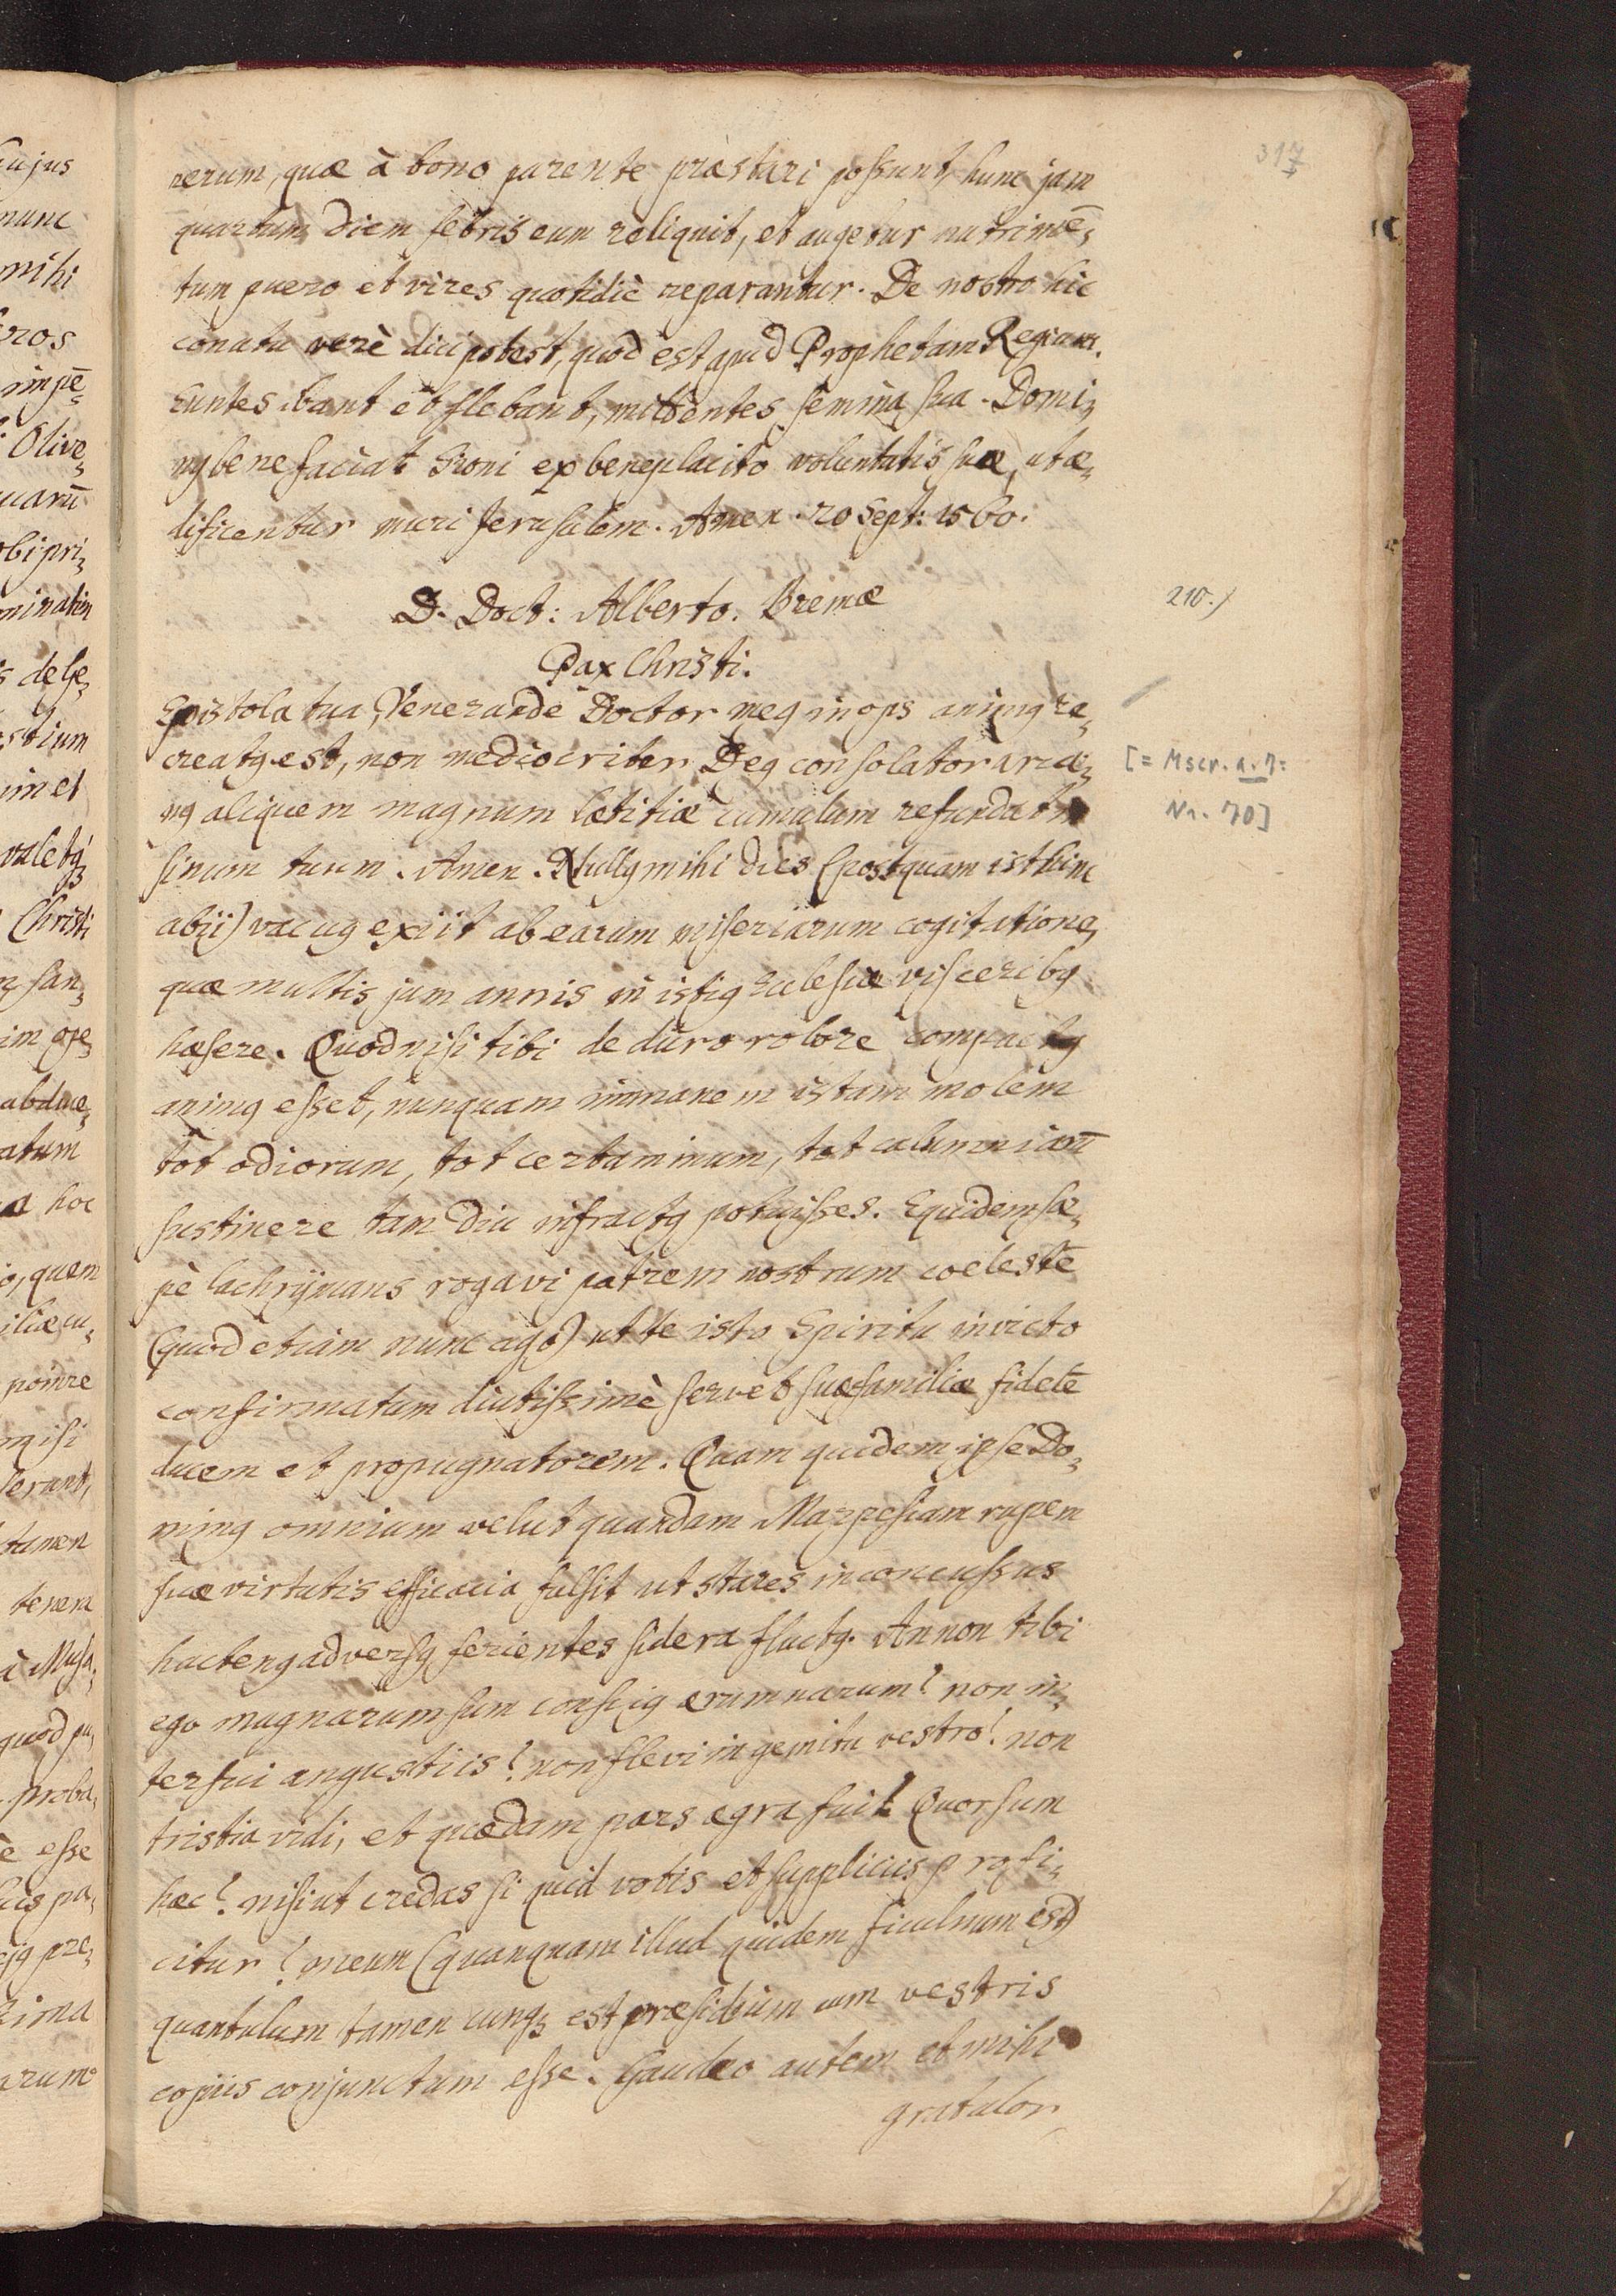 317
rerum, quæ à bono parente præstari possunt, hunc jam
quartum diem febris eum reliquit, et augetur nutrimē,
tum puero et vires quotidiè reparantur. De nostro hic
conatu verè dici potest, quod est apud Prophetam Regium.
Euntes ibant et flebant, mittentes semina sua. Domi,
nꝰ benefaciat Sioni ex beneplacito voluntatis suæ, ut æ,
dificentur muri Jerusalem. Amen. 20 Sept: 1560.
D. Doct: Alberto. Bremæ
210.)
Pax Christi.
Epistola tua, Venerande Doctor meꝰ inops animꝰ re,
creatꝰ est, non mediocriter. Deꝰ consolator uræ,
[= Mscr. a. 7:
Nr. 70]
nꝰ aliquem magnum lætitiæ cumulum refundat in
sinum tuum. Amen. Nullꝰ mihi dies (postquam isthinc
abij) vacuꝰ exiit ab earum miseriarum cogitatione,
quæ multis jam annis in istiꝰ Ecclesiæ visceribꝰ
hæsere. Quod nisi tibi de duro robore compactꝰ
animꝰ esset, nunquam immanem istam molem
tot odiorum, tot certaminum, tot calumniarū
sustinere tam diu infractꝰ potuisses. Equidem sæ,
pè lachrÿmans rogavi patrem nostrum coelestē
(quod etiam nunc ago) ut te isto Spiritu invicto
confirmatum diutissimè servet suæ familiæ fidelē
ducem et propugnatorem. Quam quidem ipse Do,
minꝰ omnium velut quandam Marpesiam rupem
suæ virtutis efficacia fulsit ut stares inconcussus
hactenꝰ adversꝰ ferientes sidera fluctꝰ. Annon tibi
ego magnarum sum consciꝰ erumnarum? non in,
terfui angustiis? non flevi in gemitu vestro? non
tristia vidi, et quædam pars ægra fui? Quorsum
hæc? nisi ut credas si quid votis et suppliciis profi,
citur? meum (quanquam illud quidem ficulnum est)
quantulum tamen cunqꝫ est præsidium cum vestris
copiis conjunctum esse. Gaudeo autem et mihi
gratulor